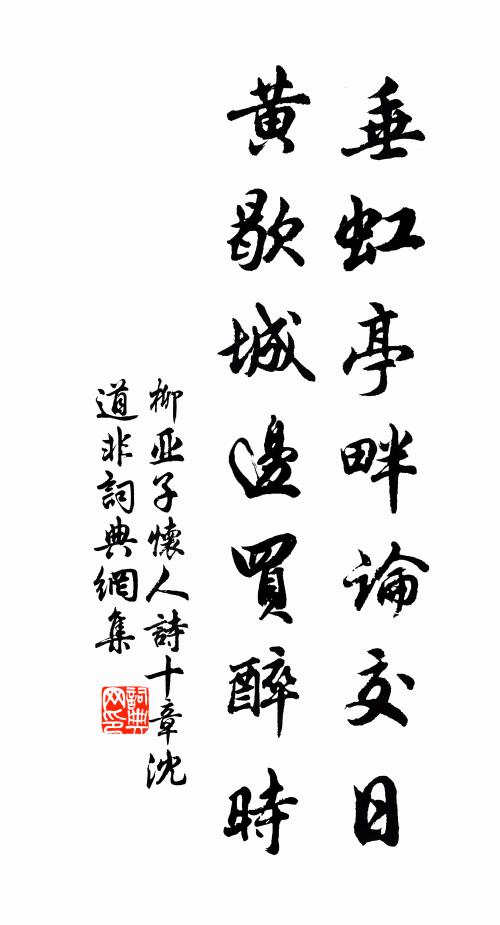 垂虹亭畔論交日
黃歇城邊買醉時
柳亚子懷人詩十章沈
道非詞典網集
詞典网印